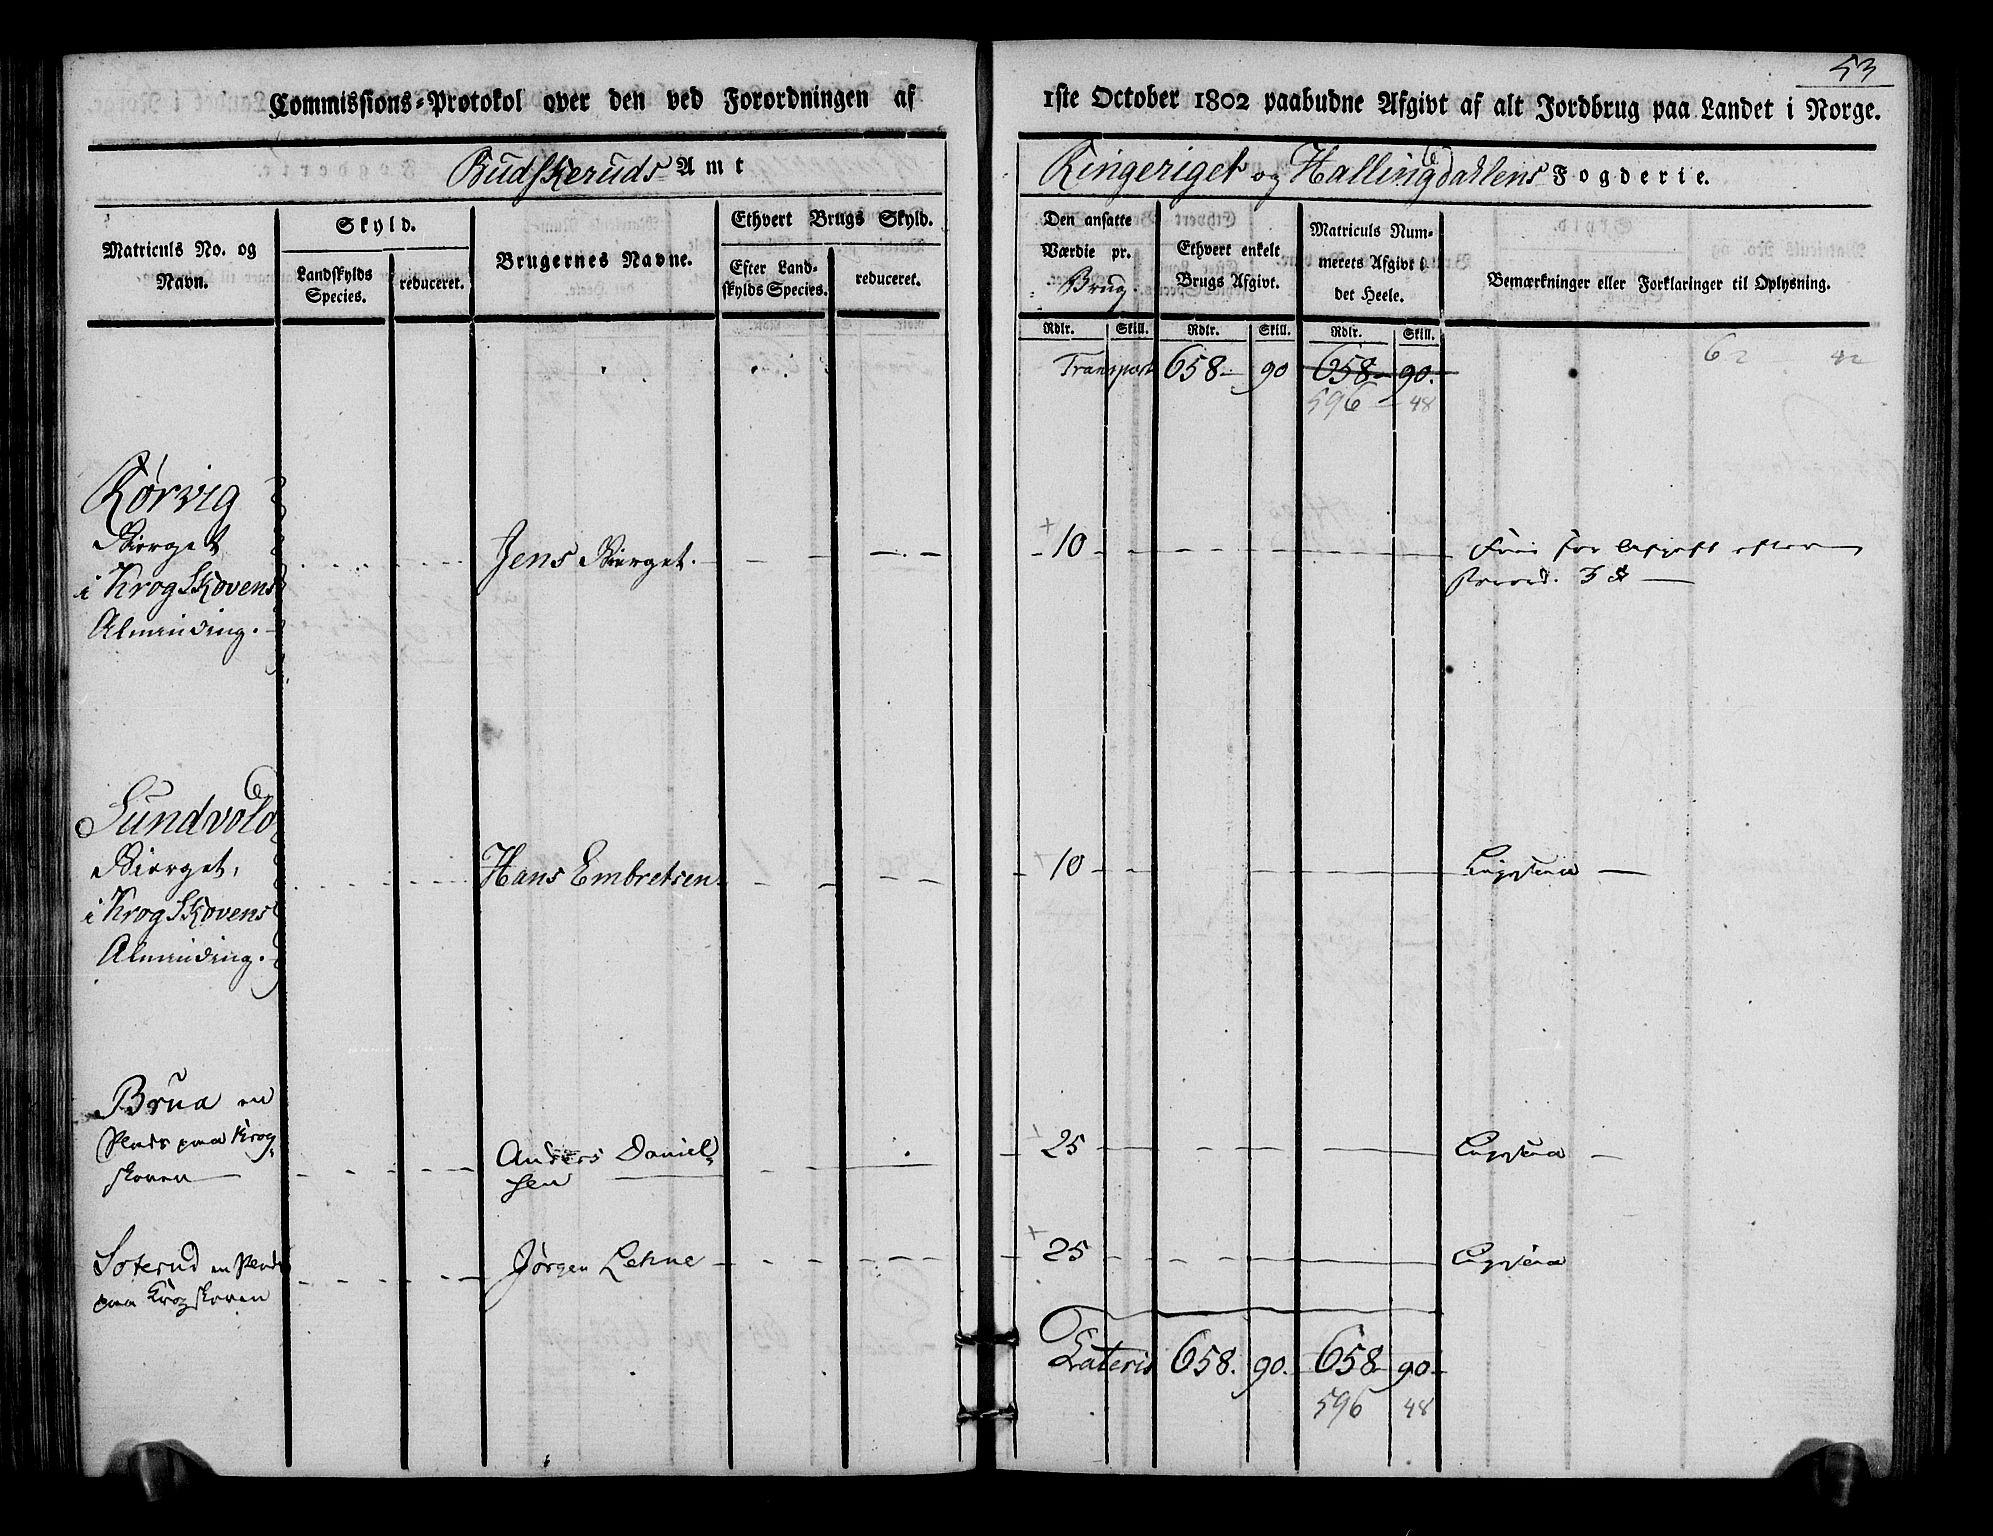 53
Commissions-Protokol over den ved Forordningen af 1ste October 1802 paabudne Afgivt af alt Jordbrug paa Landet i Norge.
Budskeruds Amt
Ringeriget og Hallingdahlens Fogderie.
Matriculs No. og Navn.
Skyld.
Landskylds Species.
reduceret.
Brugernes Navne.
Ethvert Brugs Skyld.
Efter Landskylds Species.
reduceret.
Den ansatte Værdie pr. Brug.
Ethvert enkelt Brugs Afgivt.
Matriculs Nummerets Afgivt i det Heele.
Bemærkninger eller Forklaringer til Oplysning.
Rdlr. Skill. Rdlr. Skill. Rdlr. Skill.
Transport 658 90 658 90. 62 42
596 48
Rørvig
Bierget
i KrogSkovens
Alminding.
Jens Bierget.
10
Frie for Afgivt efter
Sundvold
Bierget,
i KrogSkovens
Alminding.
Hans Embretsen
10
Ligesaa
Brua en
Plads paa Krog-
skoven
Anders Daniel-
sen
25
Ligesaa
Soterud en Plads
paa Krogskoven
Jørgen Lehne
25
Ligesaa
Lateris 658. 90. 658 90
596 48